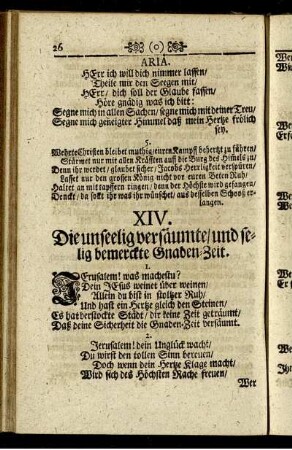 26 (o)
ARIA.
HErr ich will dich nimmer lassen/
Theile mir den Seegen mit/
HErr/ dich soll der Glaube fassen/
Höre gnädig was ich bitt:
Segne mich in allen Sachen/ segne mich mit deiner Treu/
Segne mich geneigter Himmel daß mein Hertze frölich
sey.
5.
Wehrte Christen bleibet muthig/ euren Kampff behertzt zu führen/
Stürmet nur mit allen Kräfften auff die Burg des Himels zu/
Denn ihr werdet/ glaubet sicher/ Jacobs Herrligkeit verspüren/
Lasset nur den grossen König nicht vor euren Beten Ruh/
Haltet an mit tapffern ringen/ denn der Höchste wird gefangen/
Dencke/ da sollt ihr was ihr wünschet/ aus desselben Schooß er-
langen.
XIV.
Die unseelig versäumte/ und se-
lig bemerckte Gnaden-Zeit.
1.
Jerusalem! was machestu?
Dein JEsus weinet über weinen/
Allein du bist in stoltzer Ruh/
Und hast ein Hertze gleich den Steinen/
Es hat verstockte Städt/ dir keine Zeit geträumt/
Daß deine Sicherheit die Gnaden-Zeit versäumt.
2.
Jerusalem! dein Unglück wacht/
Du wirst den tollen Sinn bereuen/
Doch wenn dein Hertze Klage macht/
Wird sich des Höchsten Rache freuen/
Wer